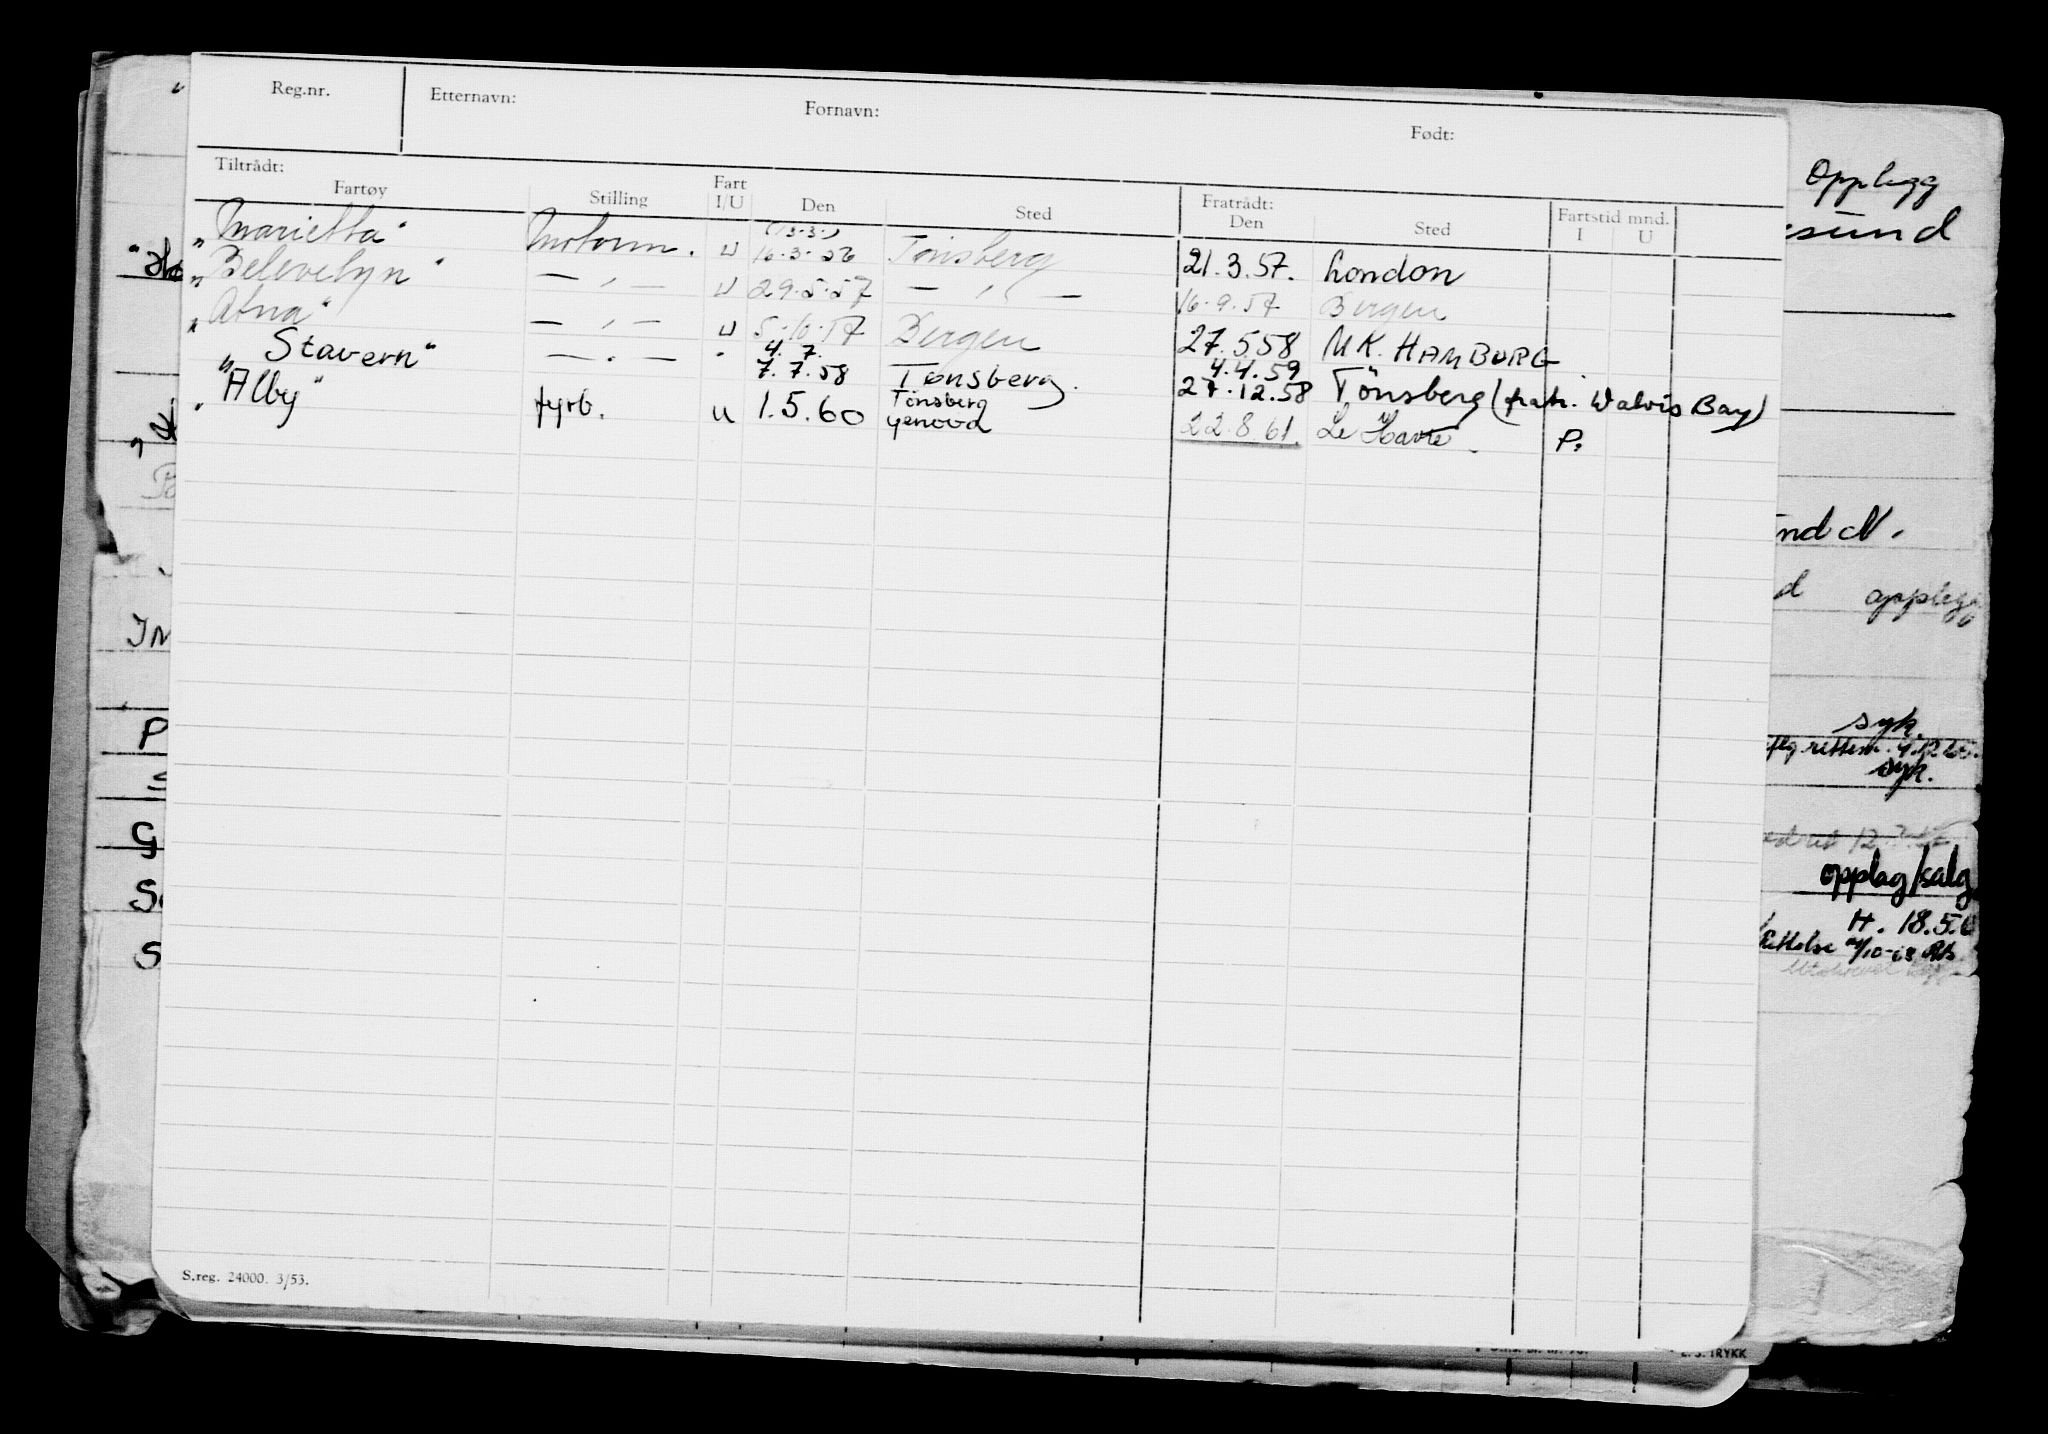 Reg.nr. Etternavn: Fornavn: Født:
Tiltrådt: Fratrådt:
Fartøy Stilling Fart I/U Den Sted Den Sted Fartstid mnd. I U
"Marietta" Motorm. U (13.3.) 16.3.56 Tönsberg 21.3.57. London
"Belevelyn" — " — U 29.5.57 — " — 16.9.57 Bergen
"Atna" — " — U 5.10.57 Bergen 27.5.58 MK. HAMBURG
"Stavern" — " — " 4.7. 7.7.58 Tønsberg. 4.4.59 27.12.58 Tönsberg (fratr. Walvis Bay)
"Alby" fyrb. U 1.5.60 Tønsberg Genova 22.8.61. Le Havre. P.
S.reg. 24000. 3/53.
Opplegg
sund
nd N.
d opplegg
syk.
syk.
opplag/salg
H. 18.5.6
Rettelse
TRYKK